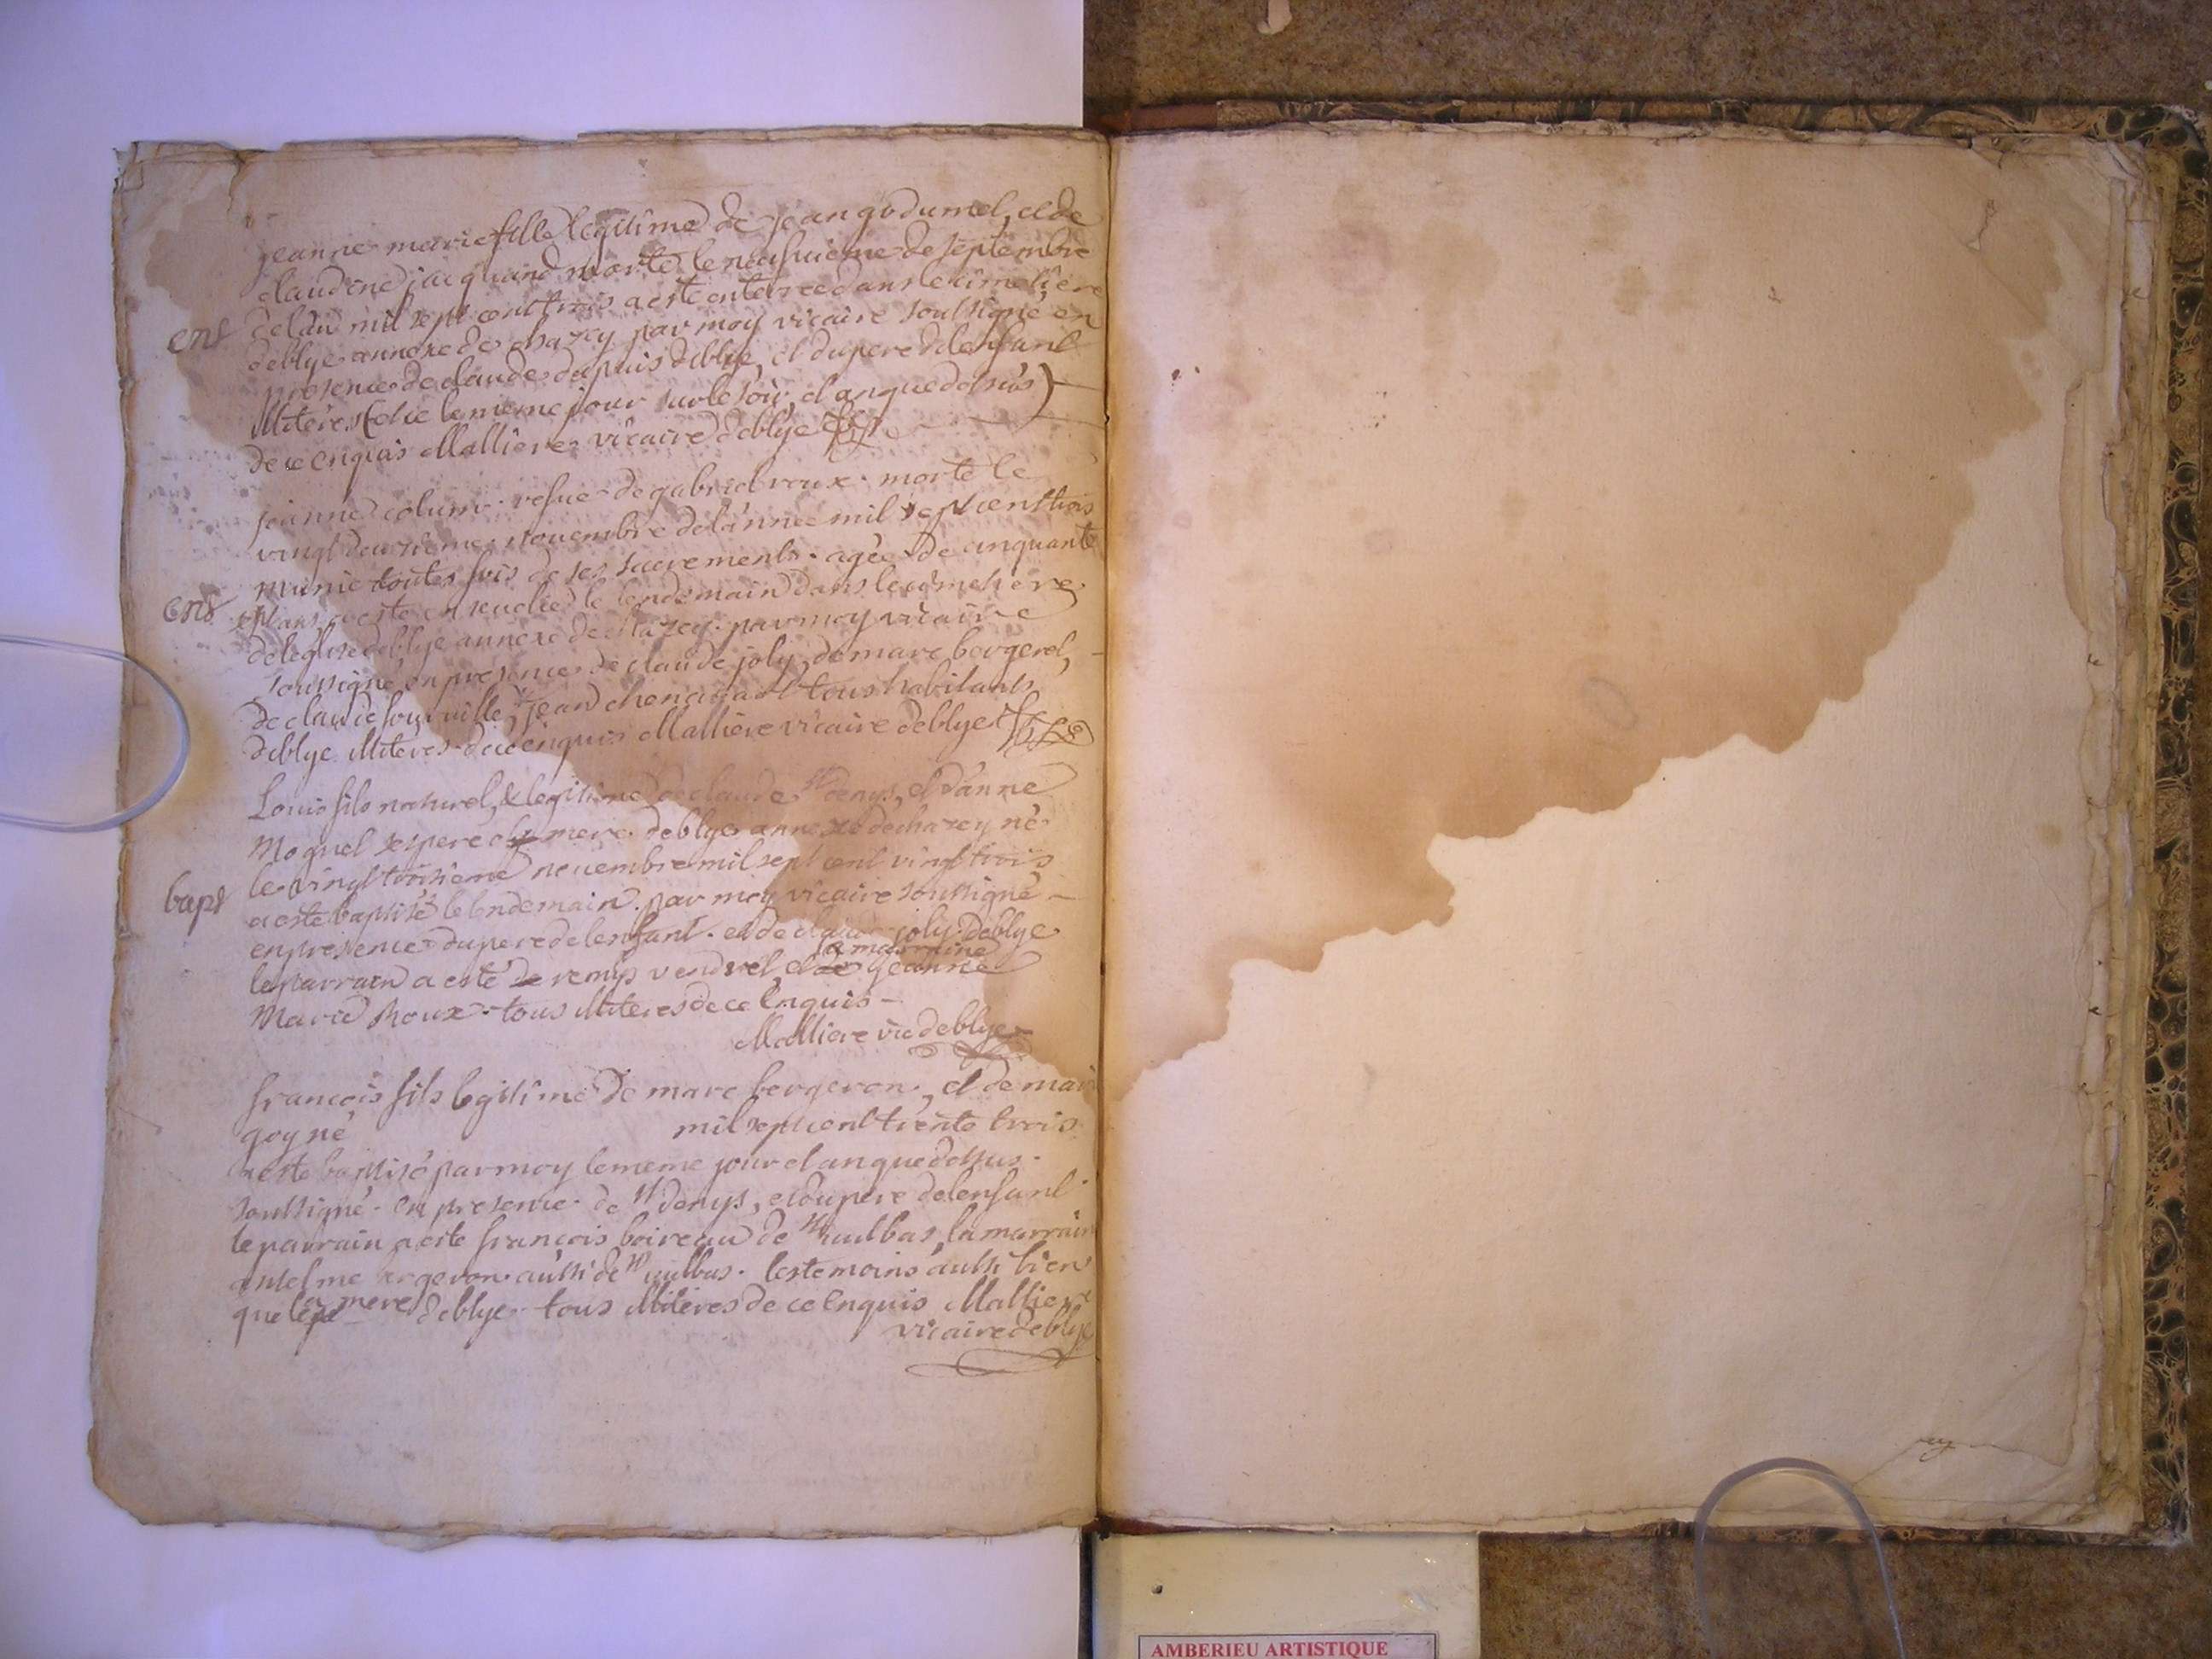 jeanne marie fille legitime de jean godumel, et de
claudine jacquand morte le neufvieme de septembre
ens
de lan mil sept cent trois a este enterree dans le cimetiere
de blye annexe de chazey par moy vicaire soussigné en
presence de claude dupuis de blye, et du pere de lenfant
illiteres et ce le meme jour sur le soir, et an que dessus
de ce enquis Malliere vicaire de blye
jeanne colum vefue de gabriel roux morte le
vingt deuxieme novembre de lannee mil sept cent trois
munie toutes fois de ses sacrements agee de cinquante
ens
sept ans a este ensevelied le lendemain dans le cimetiere
de leglise de blye annexe de chazey par moy vicaire
soussigné, en presence de claude joly, de marc bergerel,
de claude fourville, jean chenavaet tous habitants
de blye illiteres de ce enquis Malliere vicaire de blye
Louis fils naturel, & legitime de claude st denys, et d'anne
Moquel ses pere et mere de blye annexe de chazey né
le vingt troisieme novembre mil sept cent vingt trois
bapt
a este baptisé le lendemain par moy vicaire soussigné
en presence du pere de lenfant et de claude joly de blye
la marraine
le parrain a esté de remys vendrel, et de jeanne
Marie Roux tous illiteres de ce Enquis
Malliere vic de blye
francois fils legitime de marc bergeron, et de marie
goy né mil sept cent trente trois
a este baptisé par moy le meme jour et an que dessus
soussigné en presence de st denys, et du pere de lenfant
le parrain a este françois boireau de st vulbas, la marraine
antelme bergeron aussi de st vulbas les temoins aussi bien
que la mere de blye tous illiteres de ce Enquis Malliere
vicaire de blye
AMBERIEU ARTISTIQUE